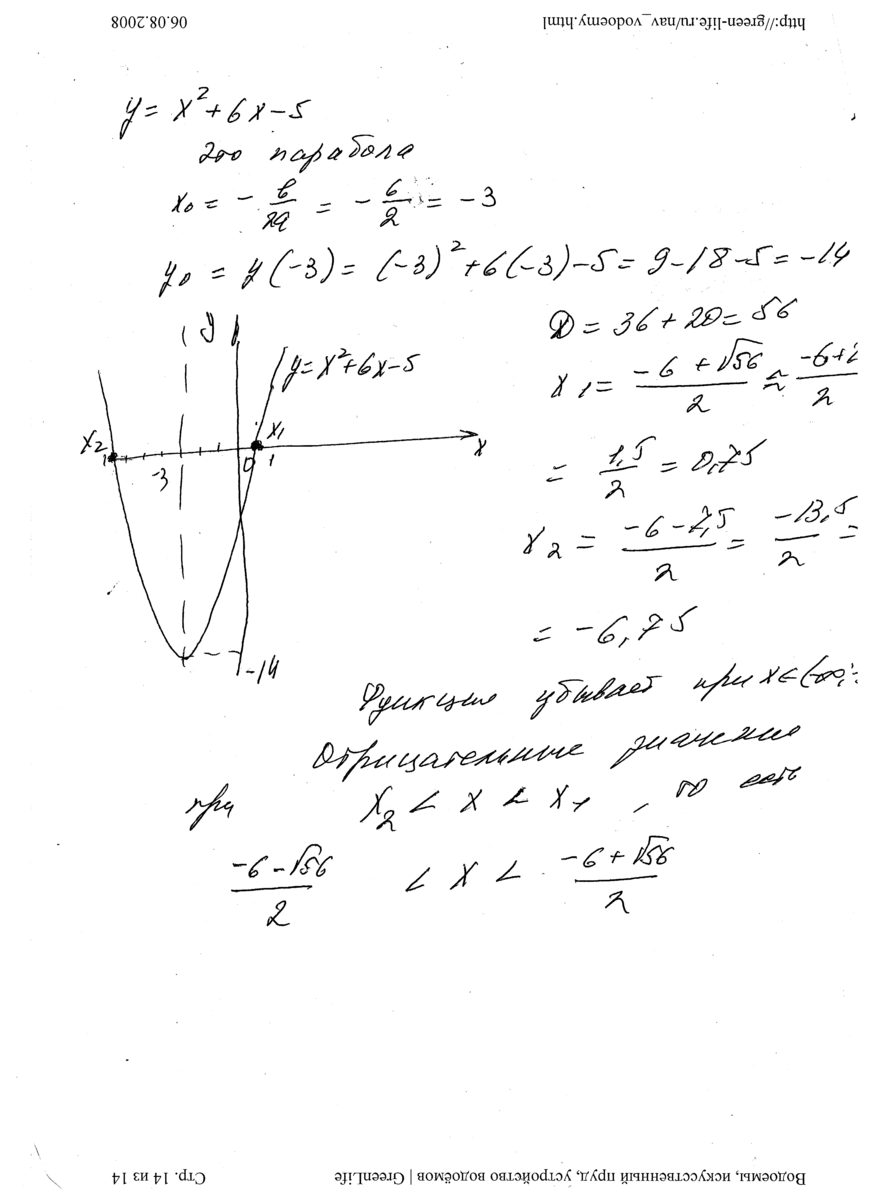 http://green-life.ru/nav_vodoemy.html 06.08.2008
y = x² + 6x - 5
это парабола
x₀ = - в/2а = - 6/2 = -3
y₀ = y(-3) = (-3)² + 6(-3) - 5 = 9 - 18 - 5 = -14
y
y = x² + 6x - 5
x₂
x₁
x
-3
0
1
-14
D = 36 + 20 = 56
x₁ = (-6 + √56)/2 ≈ (-6 +
/2
= 1,5/2 = 0,75
x₂ = (-6 - 7,5)/2 = -13,5/2 =
= -6,75
Функция убывает при x ∈ (-∞;
Отрицательные значение
при x₂ < x < x₁, то есть
(-6 - √56)/2 < x < (-6 + √56)/2
Водоемы, искусственный пруд, устройство водоёмов | GreenLife Стр. 14 из 14